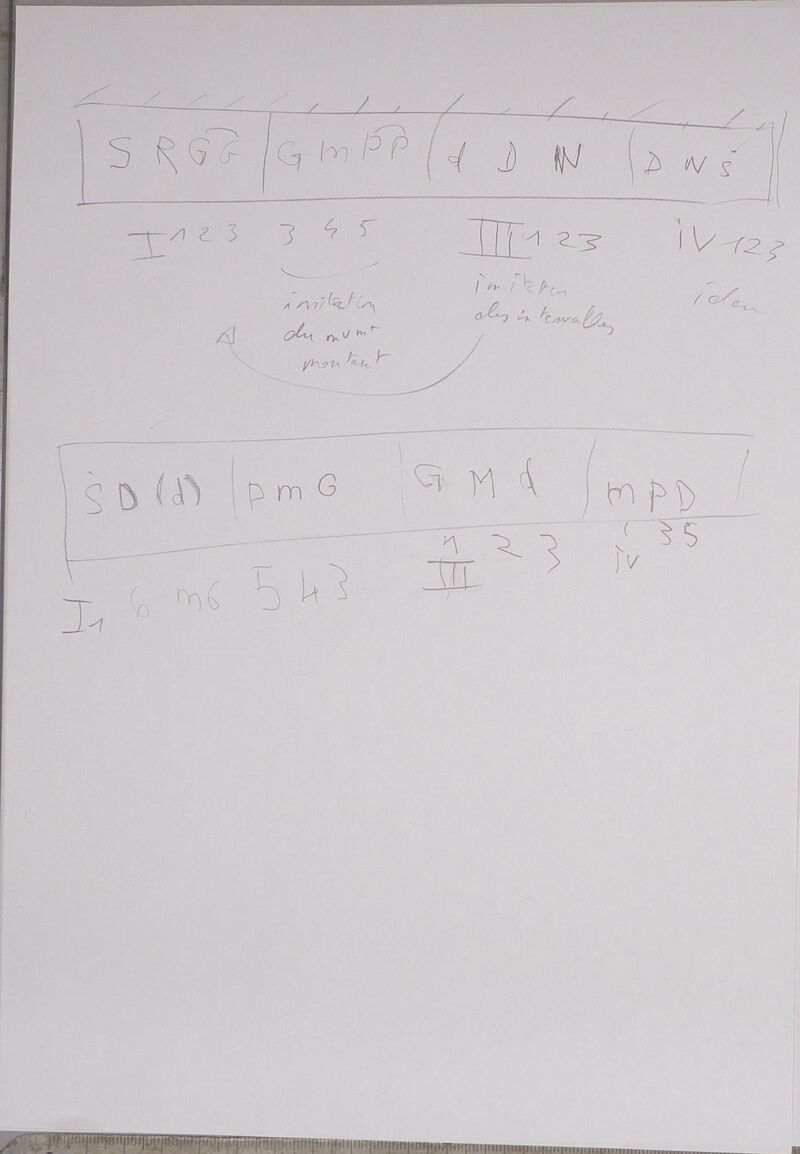 S R G G | G m P P | d D N | D N Ṡ
I 1 2 3 3 4 5 III 1 2 3 iV 1 2 3
imitation
du mvmt
montant
imitation
des intervalles
idem
Ṡ D (d) | P m G | G M d | m P D
I 1 6 m6 5 4 3 III 1 2 3 iv 1 3 5